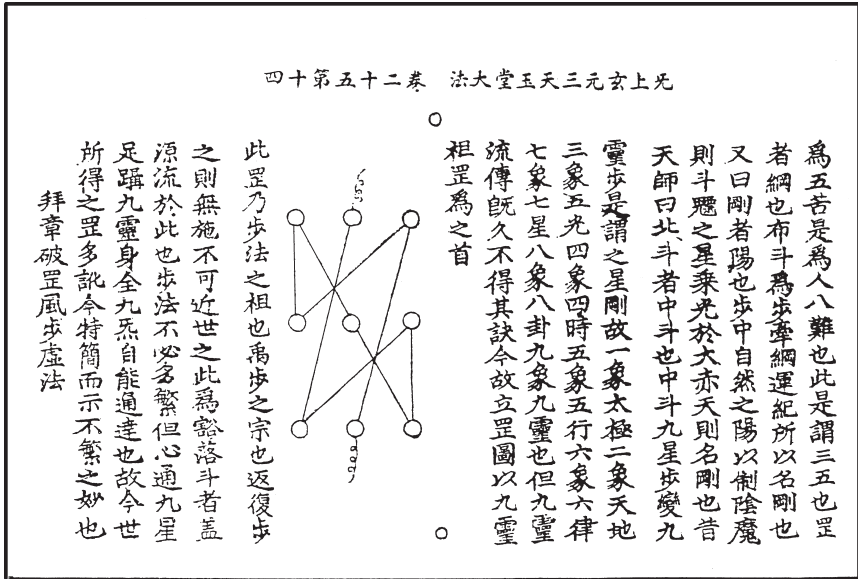 无上玄元三天玉堂大法　卷二十五第十四
爲五苦是爲人八難也此是謂三五也罡
者綱也布斗爲步牽綱運紀所以名剛也
又曰剛者陽也步中自然之陽以制陰魔
則斗魒之星乘光於大赤天則名剛也昔
天師曰北斗者中斗也中斗九星步變九
靈步是謂之星剛故一象太極二象天地
三象五光四象四時五象五行六象六律
七象七星八象八卦九象九靈也但九靈
流傳旣久不得其訣今故立罡圖以九靈
祖罡爲之首
此罡乃步法之祖也禹步之宗也返復步
之則無施不可近世之此爲豁落斗者蓋
源流於此也步法不必多繁但心通九星
足躡九靈身全九炁自能通達也故今世
所得之罡多訛今特簡而示不繁之妙也
拜章破罡風步虛法